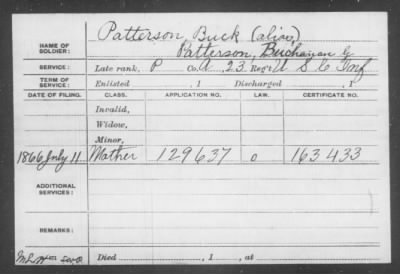 Patterson, Buck (alias)
NAME OF SOLDIER: Patterson, Buchanan G
SERVICE: Late rank, P Co. A, 23 Reg't U S C Inf
TERM OF SERVICE: Enlisted , 1 Discharged , 1
DATE OF FILING. CLASS. APPLICATION NO. LAW. CERTIFICATE NO.
Invalid,
Widow,
Minor,
1866 July 11 Mother 129637 0 163433
ADDITIONAL SERVICES:
REMARKS:
Died , 1 , at